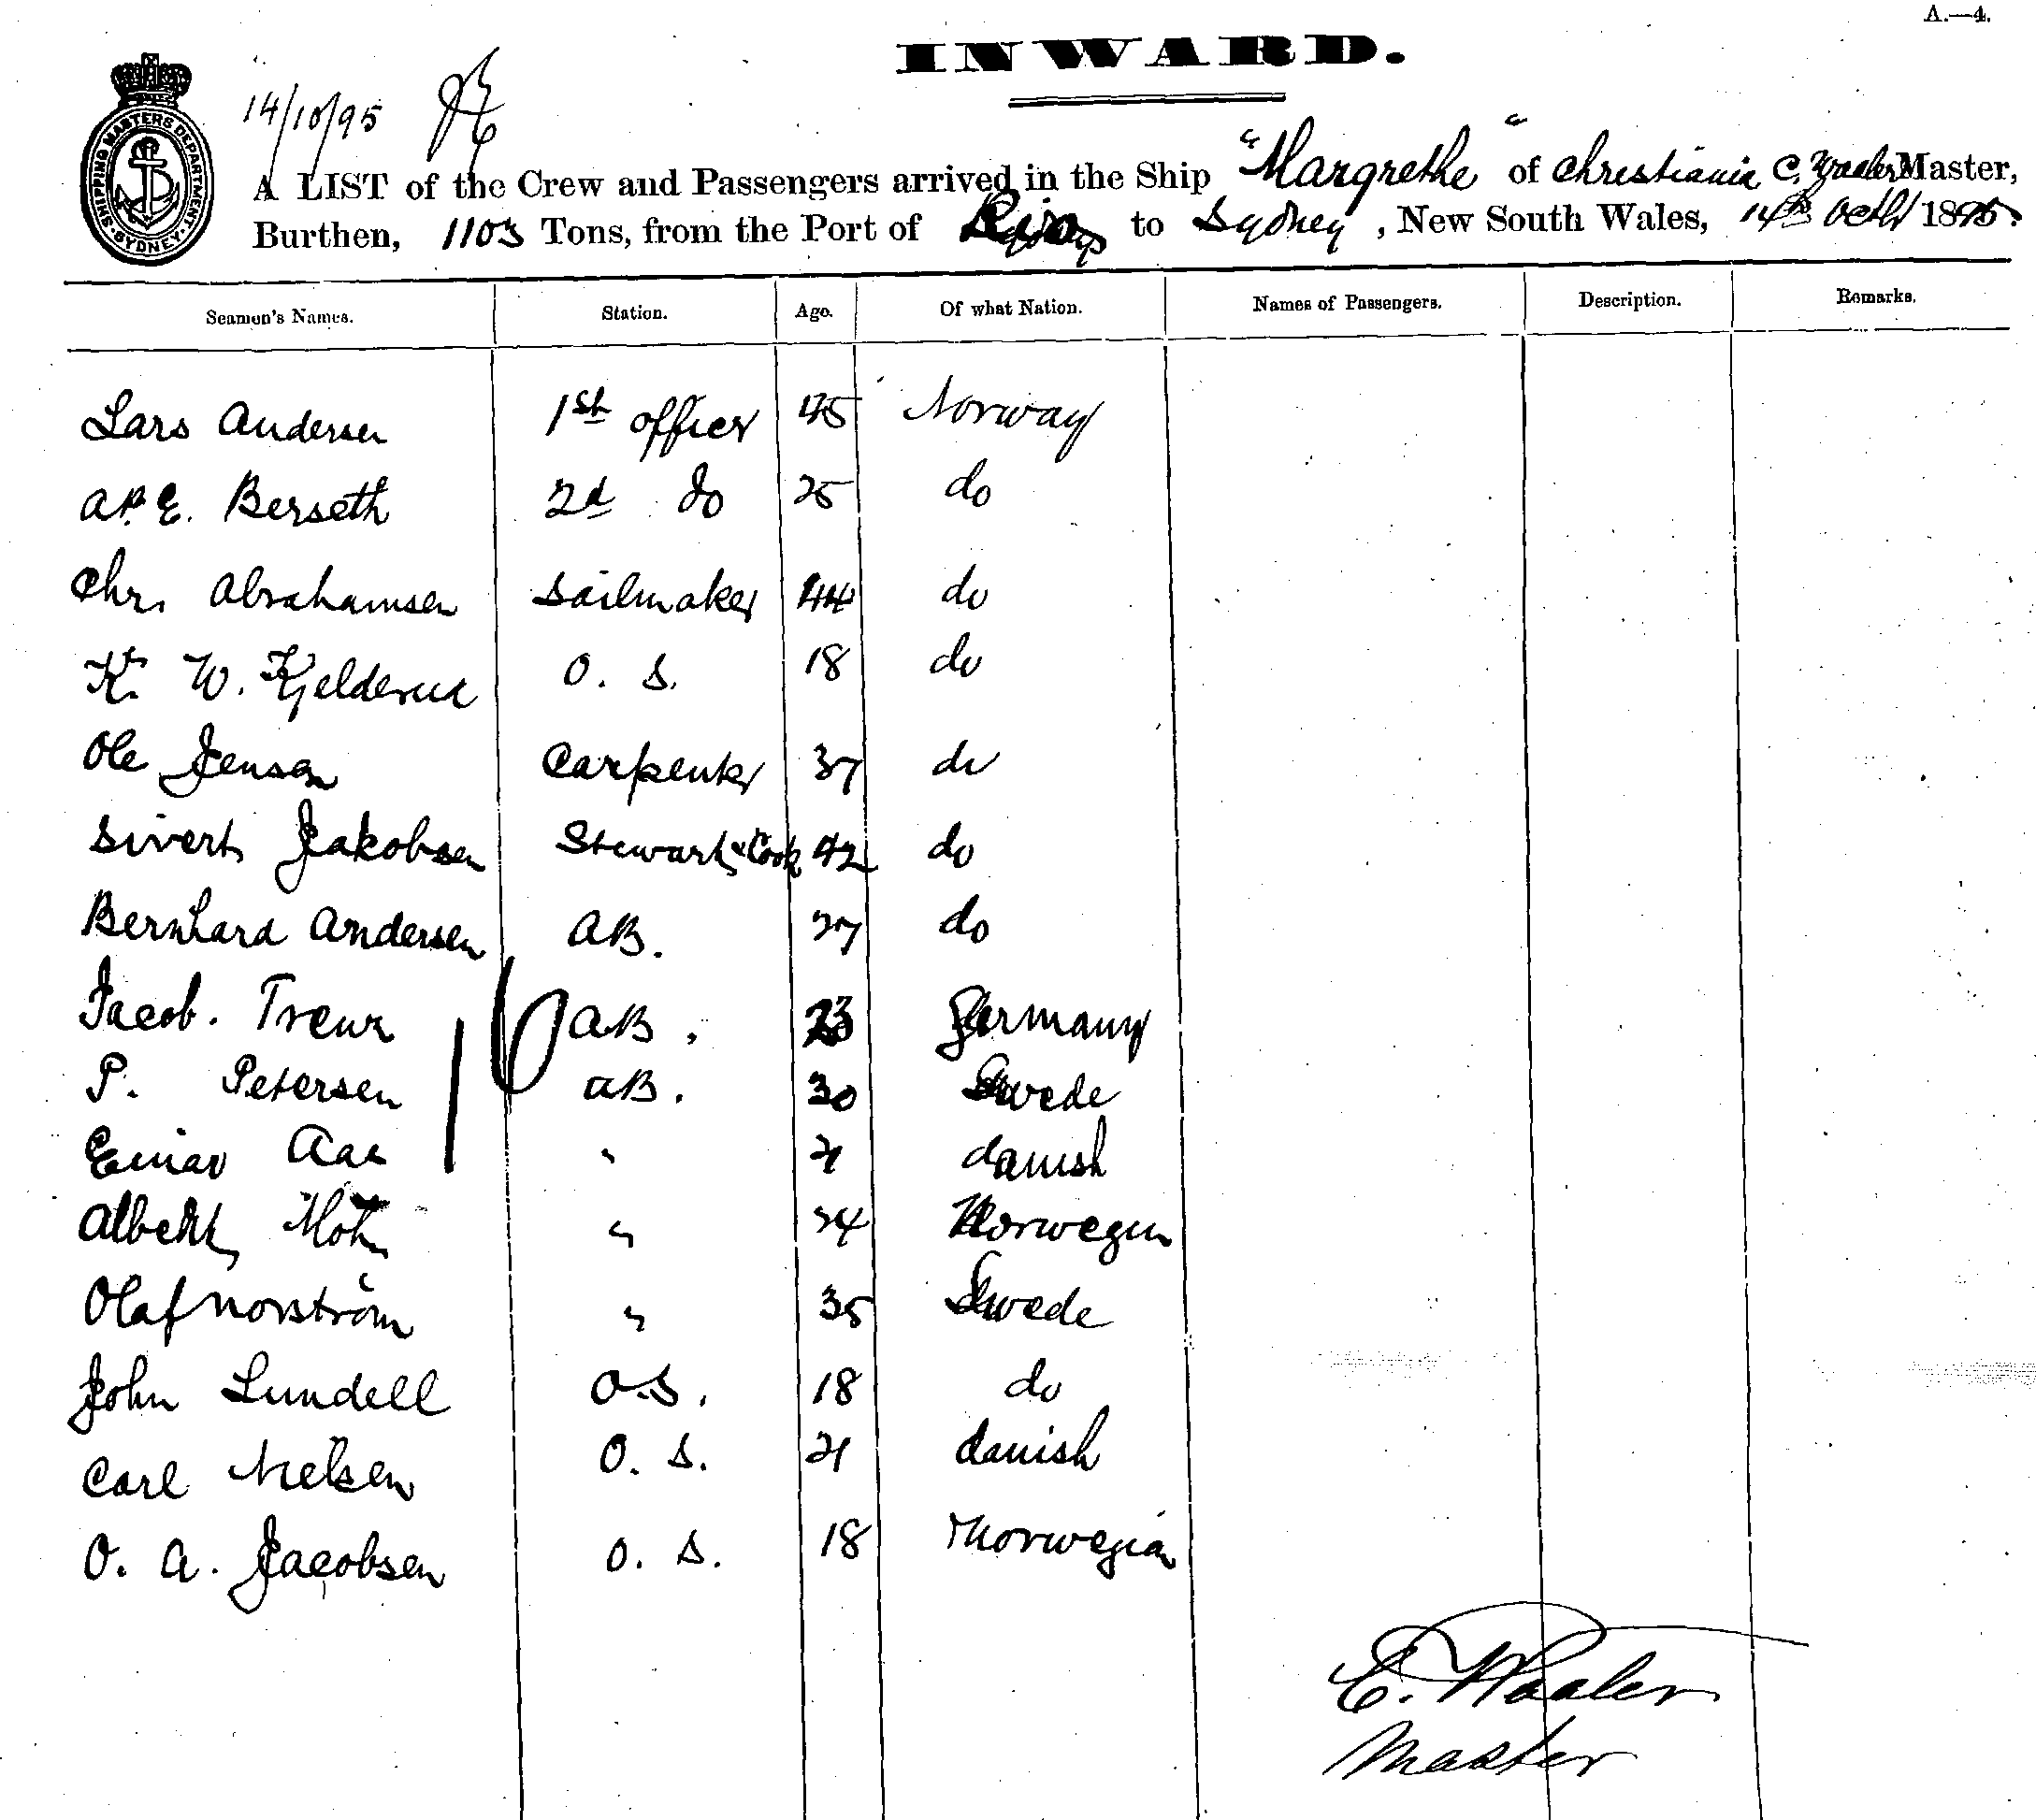 A.—4.
INWARD.
14/10/95
SHIPPING MASTERS DEPARTMENT SYDNEY
A LIST of the Crew and Passengers arrived in the Ship "Margrethe" of Christiania C. Waaler Master,
Burthen, 1103 Tons, from the Port of to Sydney, New South Wales, 14th Octbr 1895.
Seamen's Names. Station. Age. Of what Nation. Names of Passengers. Description. Remarks.
Lars Andersen 1st officer 45 Norway
A.P.E. Berseth 2d do 25 do
Chr. Abrahamsen Sailmaker 44 do
K. W. Kjelderud O. S. 18 do
Ole Jensen Carpenter 37 do
Sivert Jakobsen Stewart & Cook 42 do
Bernhard Andersen AB. 27 do
Jacob. Treur AB. 23 Germany
P. Petersen AB. 30 Swede
Einar Aae " 21 danish
Albert " 24 Norwegen
Olaf Norström " 35 Swede
John Lundell O.S. 18 do
Carl Nielsen O. S. 21 danish
O. A. Jacobsen O. S. 18 Norwegian
16
C. Waaler
Master